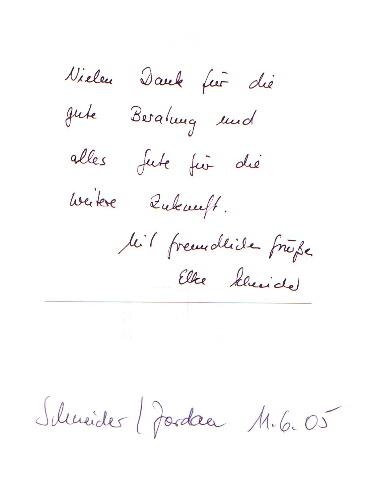 Vielen Dank für die
gute Beratung und
alles Gute für die
weitere Zukunft.
Mit freundlichen Grüßen
Elke Schneider
Schneider / Jordan 11.6.05